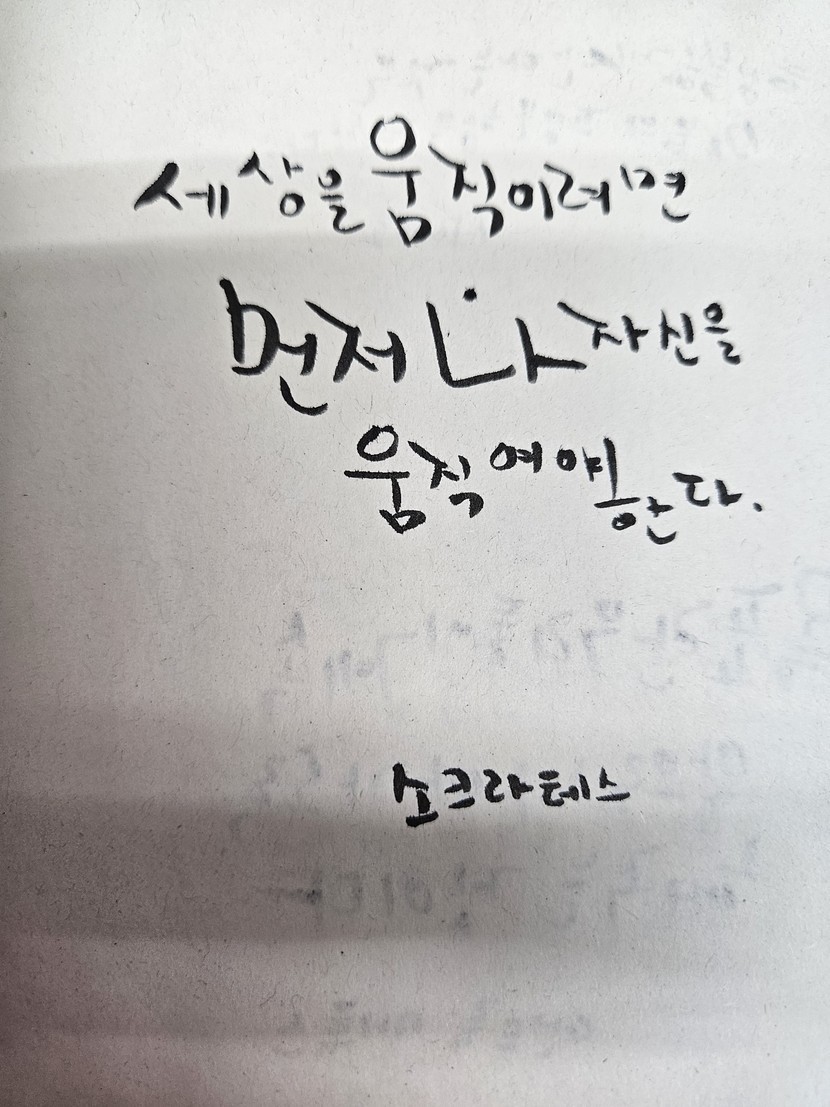 세상을 움직이려면
먼저 나 자신을
움직여야 한다.
소크라테스